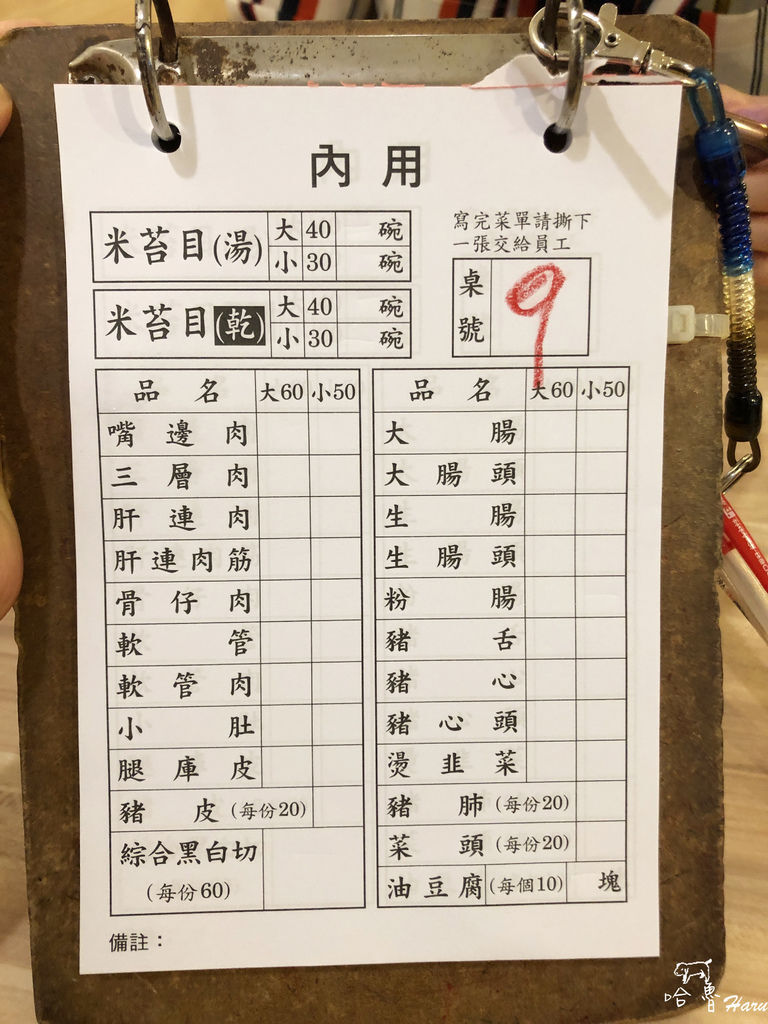 內用
米苔目(湯) 大 40 碗
小 30 碗
米苔目(乾) 大 40 碗
小 30 碗
寫完菜單請撕下
一張交給員工
桌號 9
品名 大60 小50
嘴邊肉
三層肉
肝連肉
肝連肉筋
骨仔肉
軟管
軟管肉
小肚
腿庫皮
豬皮(每份20)
綜合黑白切
(每份60)
品名 大60 小50
大腸
大腸頭
生腸
生腸頭
粉腸
豬舌
豬心
豬心頭
燙韭菜
豬肺(每份20)
菜頭(每份20)
油豆腐(每個10) 塊
備註：
哈魯 Haru